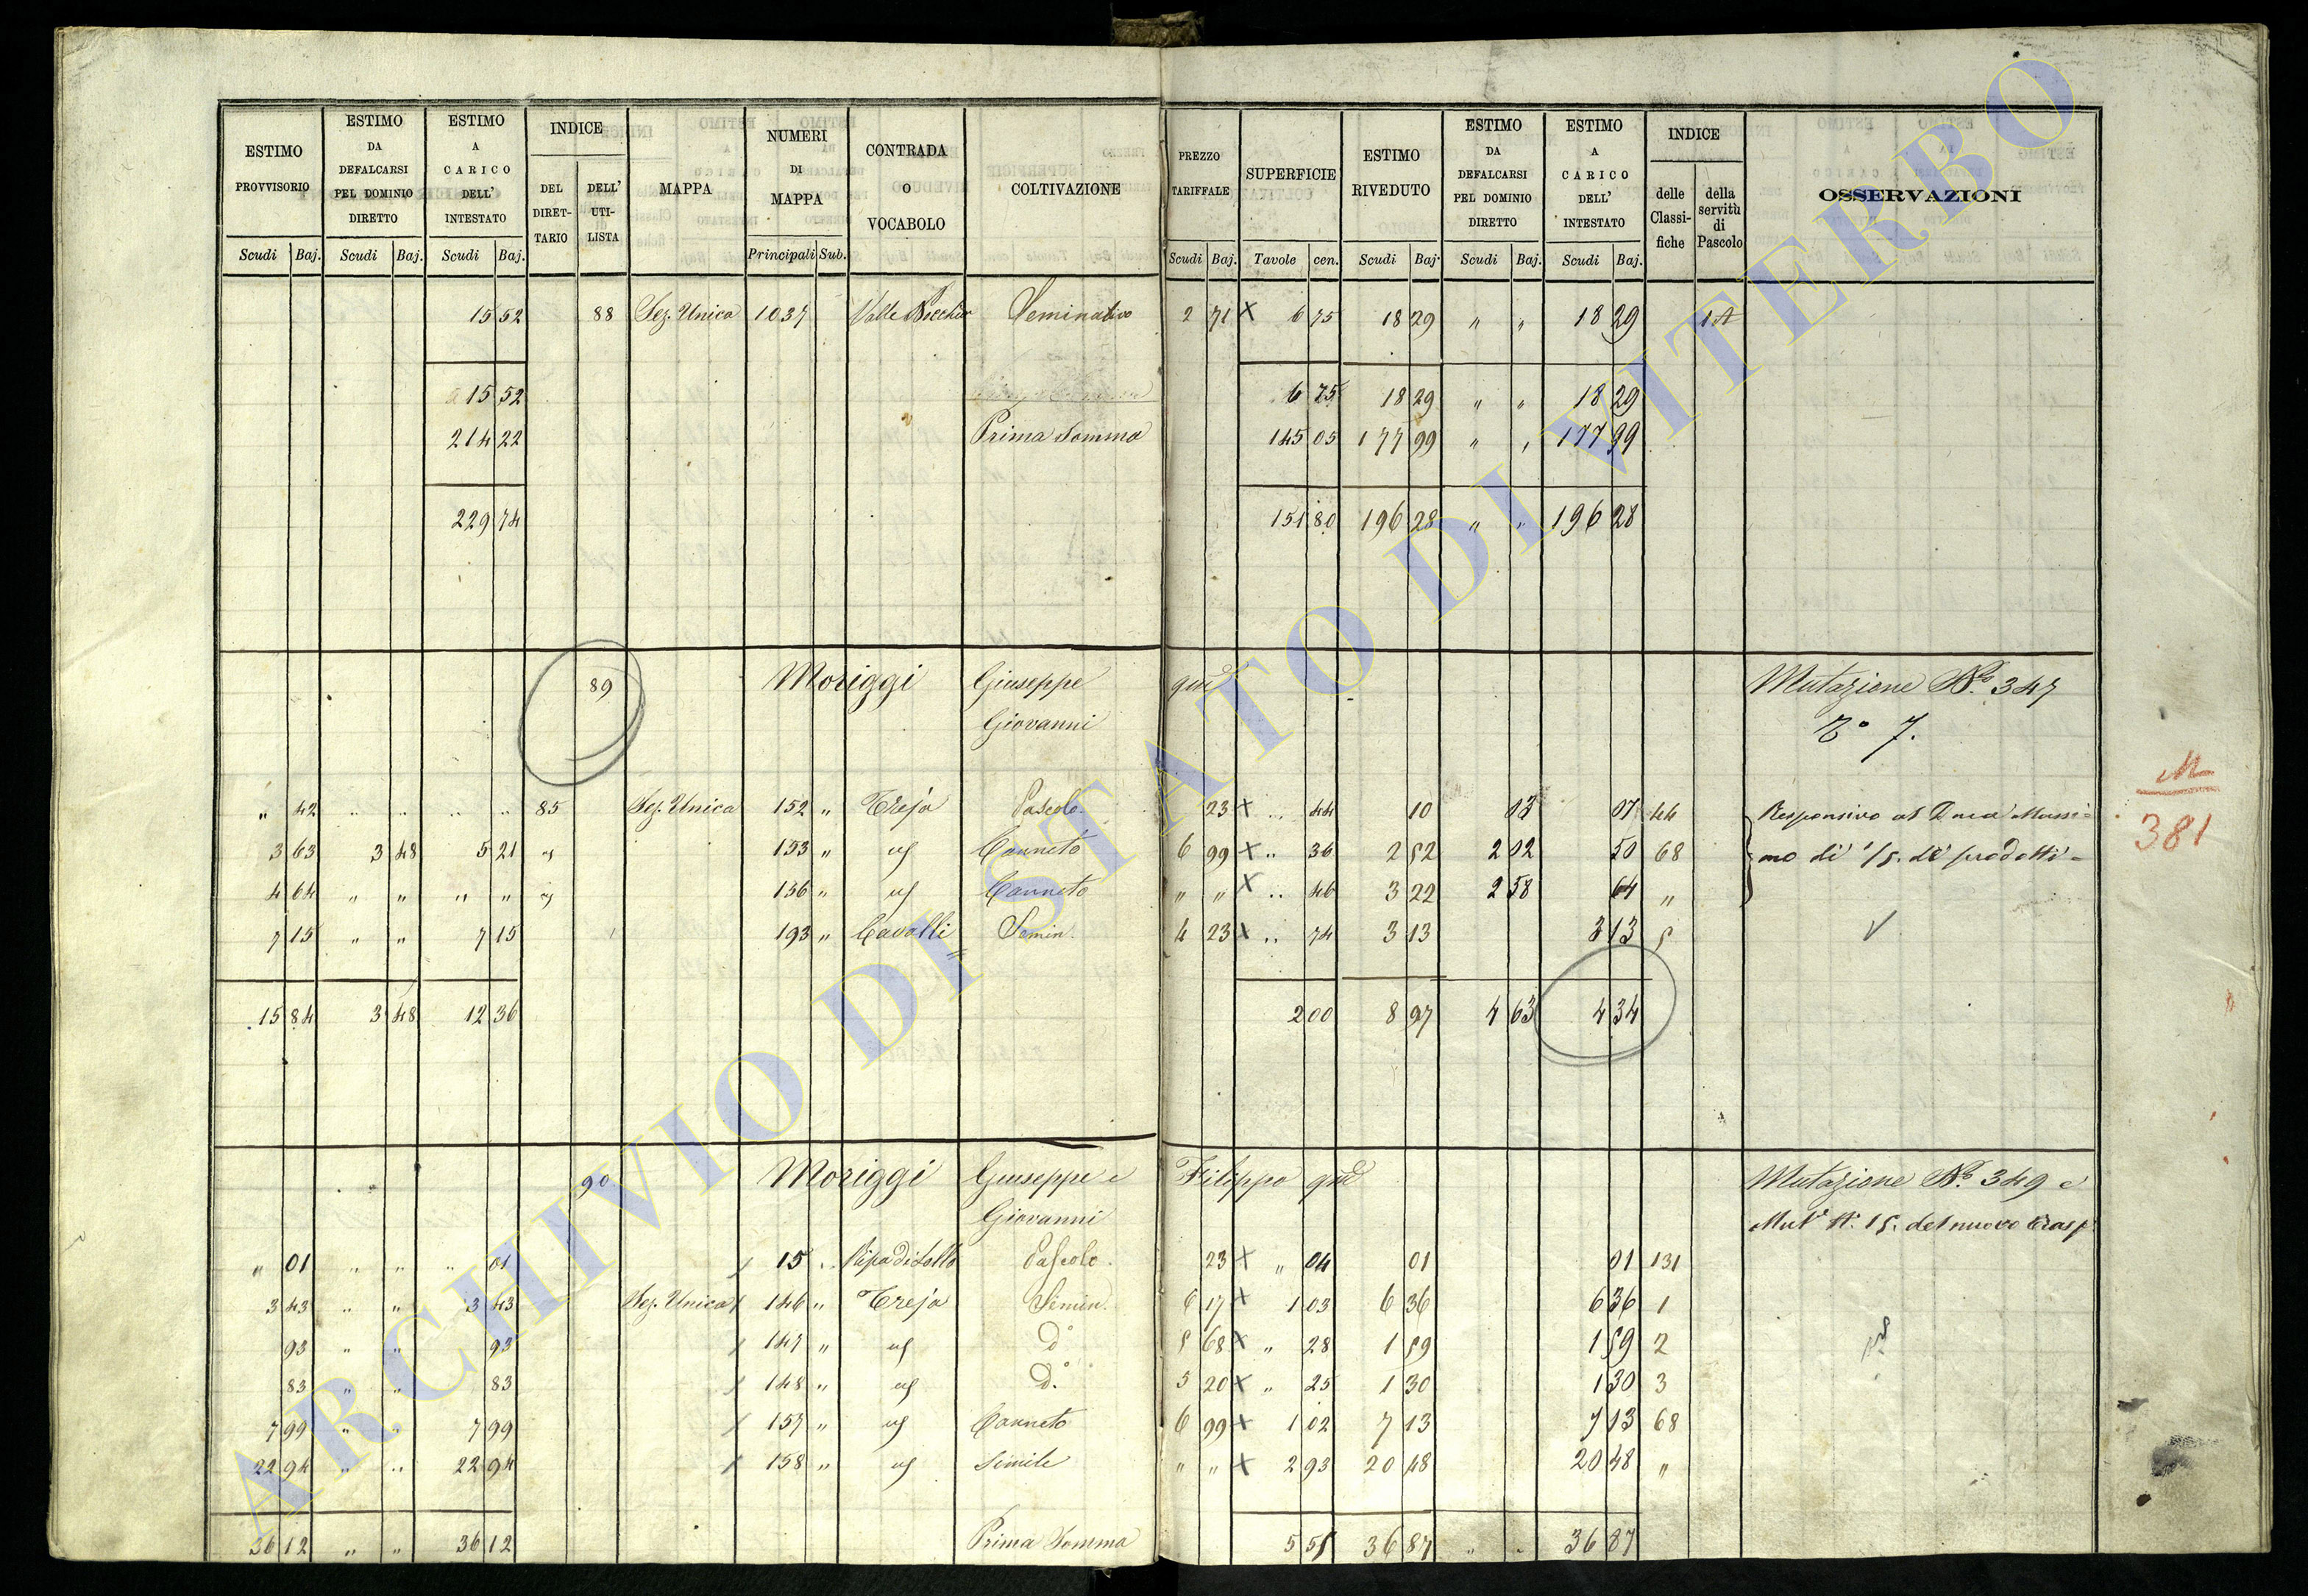 ESTIMO PROVVISORIO Scudi Baj.
ESTIMO DA DEFALCARSI PEL DOMINIO DIRETTO Scudi Baj.
ESTIMO A CARICO DELL' INTESTATO Scudi Baj.
INDICE DEL DIRET-TARIO DELL' UTI-LISTA
MAPPA
NUMERI DI MAPPA Principali Sub.
CONTRADA O VOCABOLO
COLTIVAZIONE
PREZZO TARIFFALE Scudi Baj.
SUPERFICIE Tavole cen.
ESTIMO RIVEDUTO Scudi Baj.
ESTIMO DA DEFALCARSI PEL DOMINIO DIRETTO Scudi Baj.
ESTIMO A CARICO DELL' INTESTATO Scudi Baj.
INDICE delle Classi-fiche della servitù di Pascolo
OSSERVAZIONI
15 52 88 Sez. Unica 1037 Valle Seminativo 2 71 X 6 75 18 29 " " 18 29 1 A
15 52 6 75 18 29 " " 18 29
214 22 Prima Somma 145 05 177 99 " " 177 99
229 74 151 80 196 28 " " 196 28
89 Moriggi Giuseppe qm Mutazione No. 347
Giovanni 7.
" 42 " " " " 85 Sez. Unica 152 " Treja Pascolo 23 X " 44 10 03 07 44 Responsivo al Duca Massi=
3 63 3 48 5 21 " 153 " " Canneto 6 99 X " 36 2 52 2 02 50 68 mo di 1/5. di prodotti
4 64 " " " " " 156 " " Canneto " " X " 46 3 22 2 58 64 "
7 15 " " 7 15 193 " Cavalli Semin. 4 23 X " 74 3 13 3 13 5
15 84 3 48 12 36 2 00 8 97 4 63 4 34
M
381
90 Moriggi Giuseppe e Filippo qm Mutazione No. 349 e
Giovanni Mut. N. 15. del nuovo trasp
" 01 " " " 01 15 " Ripa di Lollo Pascolo. 23 X " 04 01 01 131
3 43 " " 3 43 Sez. Unica 146 " Treja Semin. 6 17 X 1 03 6 36 6 36 1
93 " " 93 147 " " do 5 68 X " 28 1 59 1 59 2
83 " " 83 148 " " do. 5 20 X " 25 1 30 1 30 3
7 99 " " 7 99 157 " " Canneto 6 99 X 1 02 7 13 7 13 68
22 94 " " 22 94 158 " " Simile " " X 2 93 20 48 20 48 "
36 12 " " 36 12 Prima Somma 5 55 36 87 " " 36 87
ARCHIVIO DI STATO DI VITERBO